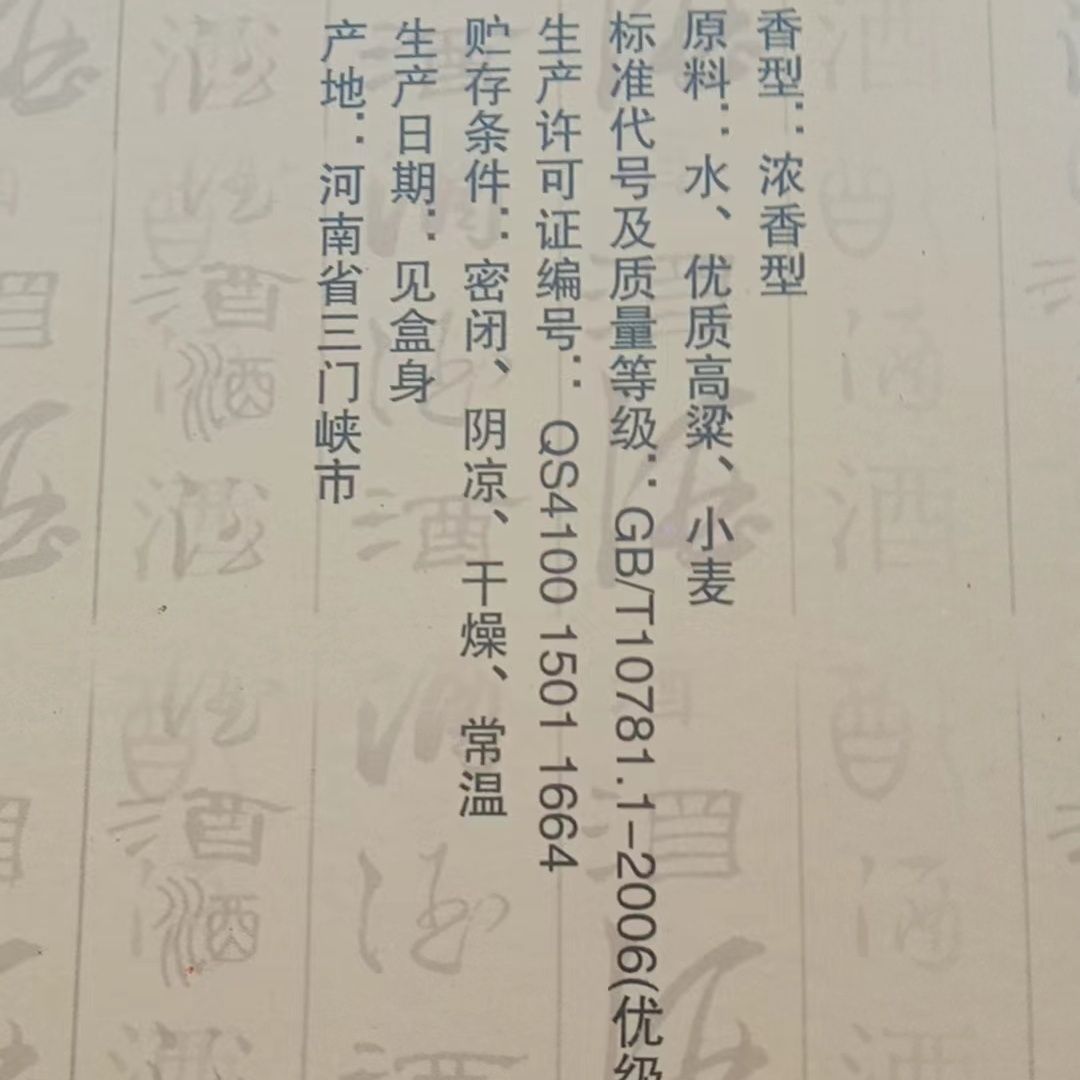 香型：浓香型
原料：水、优质高粱、小麦
标准代号及质量等级：GB/T10781.1-2006(优级
生产许可证编号：QS4100 1501 1664
贮存条件：密闭、阴凉、干燥、常温
生产日期：见盒身
产地：河南省三门峡市